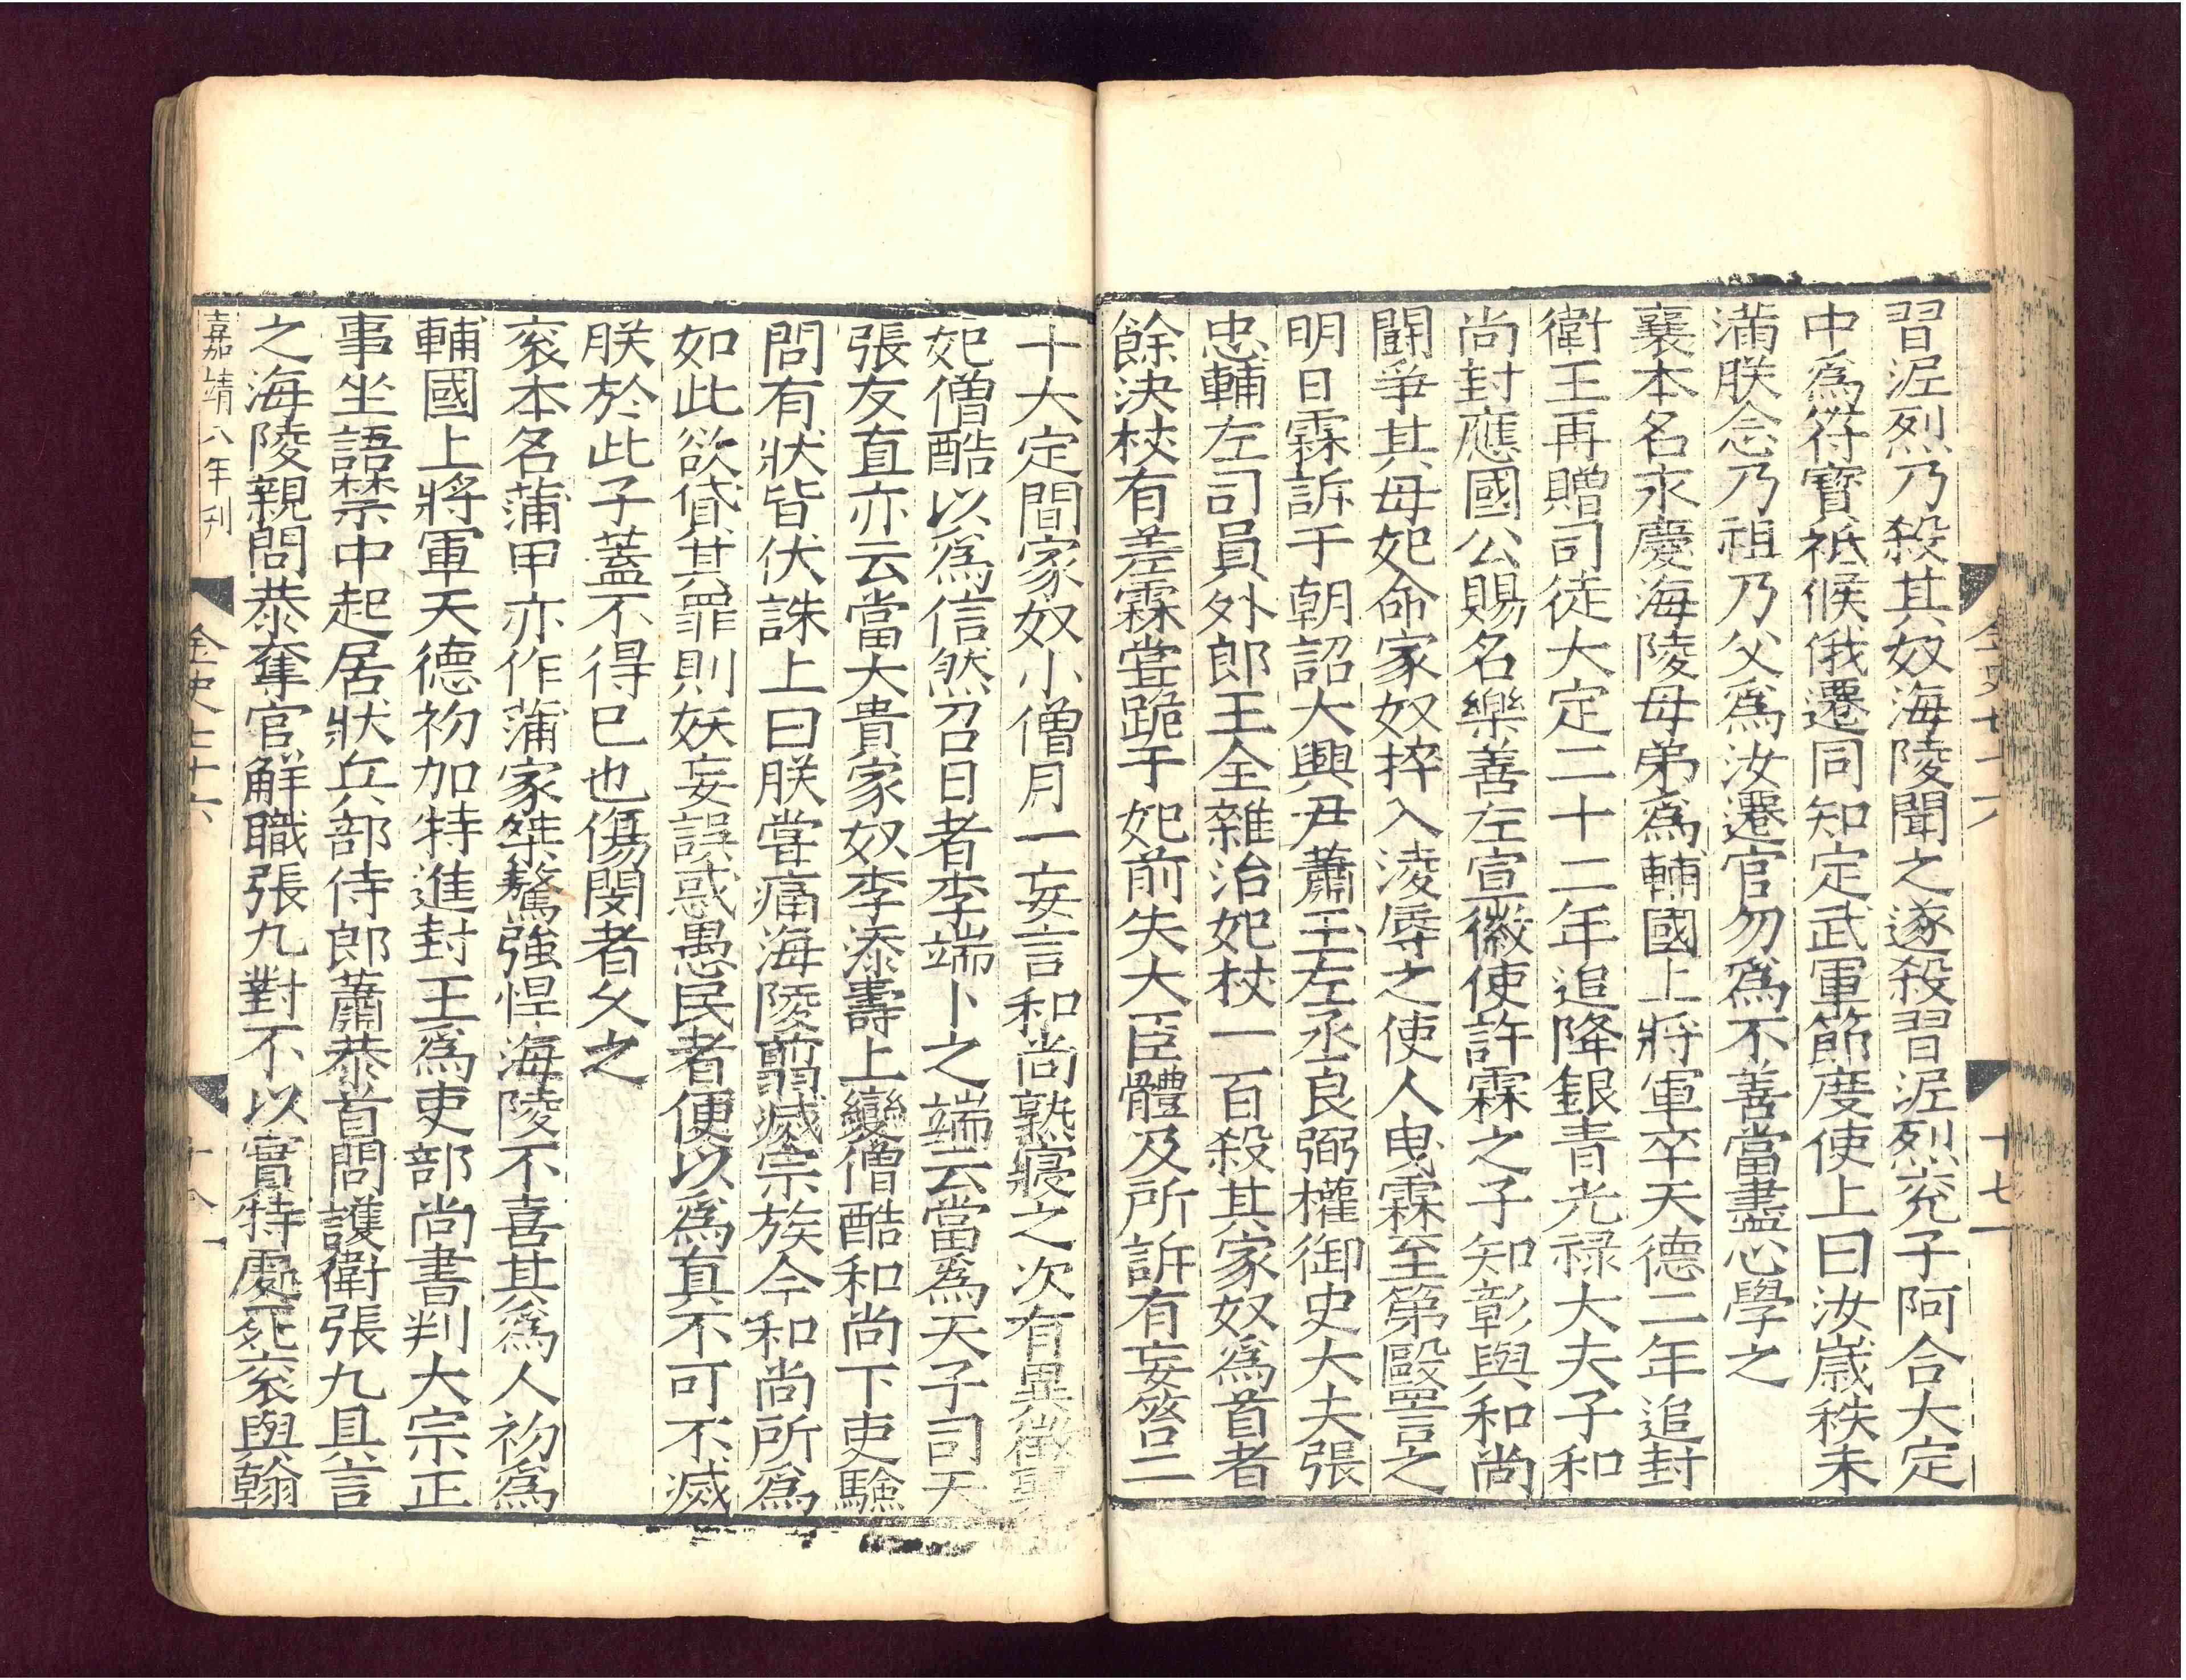 金史七十六
十七
習泥烈乃殺其奴海陵聞之遂殺習泥烈兖子阿合大定
中爲符寶祗候俄遷同知定武軍節度使上曰汝歲秩未
滿朕念乃祖乃父爲汝遷官勿爲不善當盡心學之
襄本名永慶海陵母弟爲輔國上將軍卒天德二年追封
衛王再贈司徒大定二十二年追降銀青光禄大夫子和
尚封應國公賜名樂善左宣徽使許霖之子知彰與和尚
鬪爭其母妃命家奴捽入淩辱之使人曳霖至第毆詈之
明日霖訴于朝詔大興尹蕭玉左丞良弼權御史大夫張
忠輔左司員外郎王全雜治妃杖一百殺其家奴爲首者
餘決杖有差霖甞跪于妃前失大臣體及所訴有妄笞二
十大定間家奴小僧月一妄言和尚熟寢之次有異徵襄
妃僧酷以爲信然召日者李端卜之端云當爲天子司天
張友直亦云當大貴家奴李添壽上變僧酷和尚下吏驗
問有狀皆伏誅上曰朕甞痛海陵翦滅宗族今和尚所爲
如此欲貸其罪則妖妄誤惑愚民者便以爲真不可不滅
朕於此子蓋不得已也傷閔者久之
衮本名蒲甲亦作蒲家桀驁強悍海陵不喜其爲人初爲
輔國上將軍天德初加特進封王爲吏部尚書判大宗正
事坐語禁中起居狀兵部侍郎蕭恭首問護衛張九具言
之海陵親問恭奪官解職張九對不以實特處死衮與翰
嘉靖八年刊
金史七十六
十八